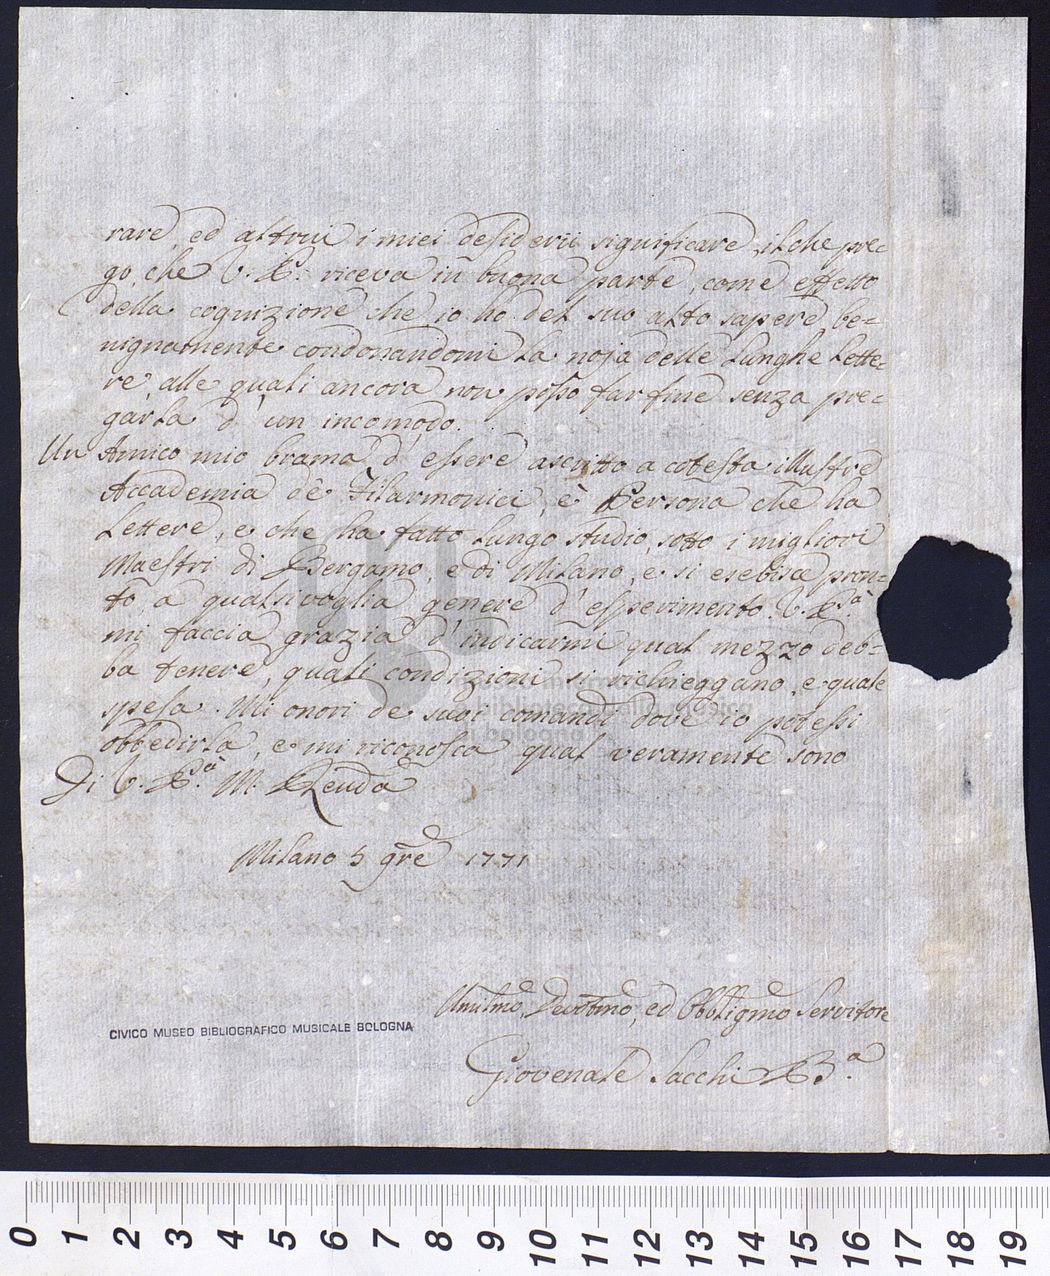 rare, ed altrui i miei desiderii significare, il che pre=
go, che V. P. riceva in buona parte, come effetto
della cognizione che io ho del suo alto sapere be=
nignamente condonandomi la noja delle lunghe Lette=
re, alle quali ancora non posso far fine senza pre=
garla d' un incomodo.
Un Amico mio brama d' essere ascritto a cotesta illustre
Accademia de Filarmonici, è Persona che ha
Lettere, e che ha fatto lungo studio, sotto i migliori
Maestri di Bergamo, e di Milano, e si esebisce pron=
to a qualsivoglia genere d' esperimento. V. P.a
mi faccia grazia d' indicarmi qual mezzo deb=
ba tenere, quali condizioni si richieggano, e quale
spesa. Mi onori de suoi comandi dove io potessi
obbedirla, e mi riconosca qual veramente sono
Di V. P.a M. Renda
Milano 5 9re 1771
Umilmo, Devotmo, ed Obbligmo Servitore
Giovenale Sacchi B.a
CIVICO MUSEO BIBLIOGRAFICO MUSICALE BOLOGNA
museo internazionale
e biblioteca della musica
di bologna
0 1 2 3 4 5 6 7 8 9 10 11 12 13 14 15 16 17 18 19